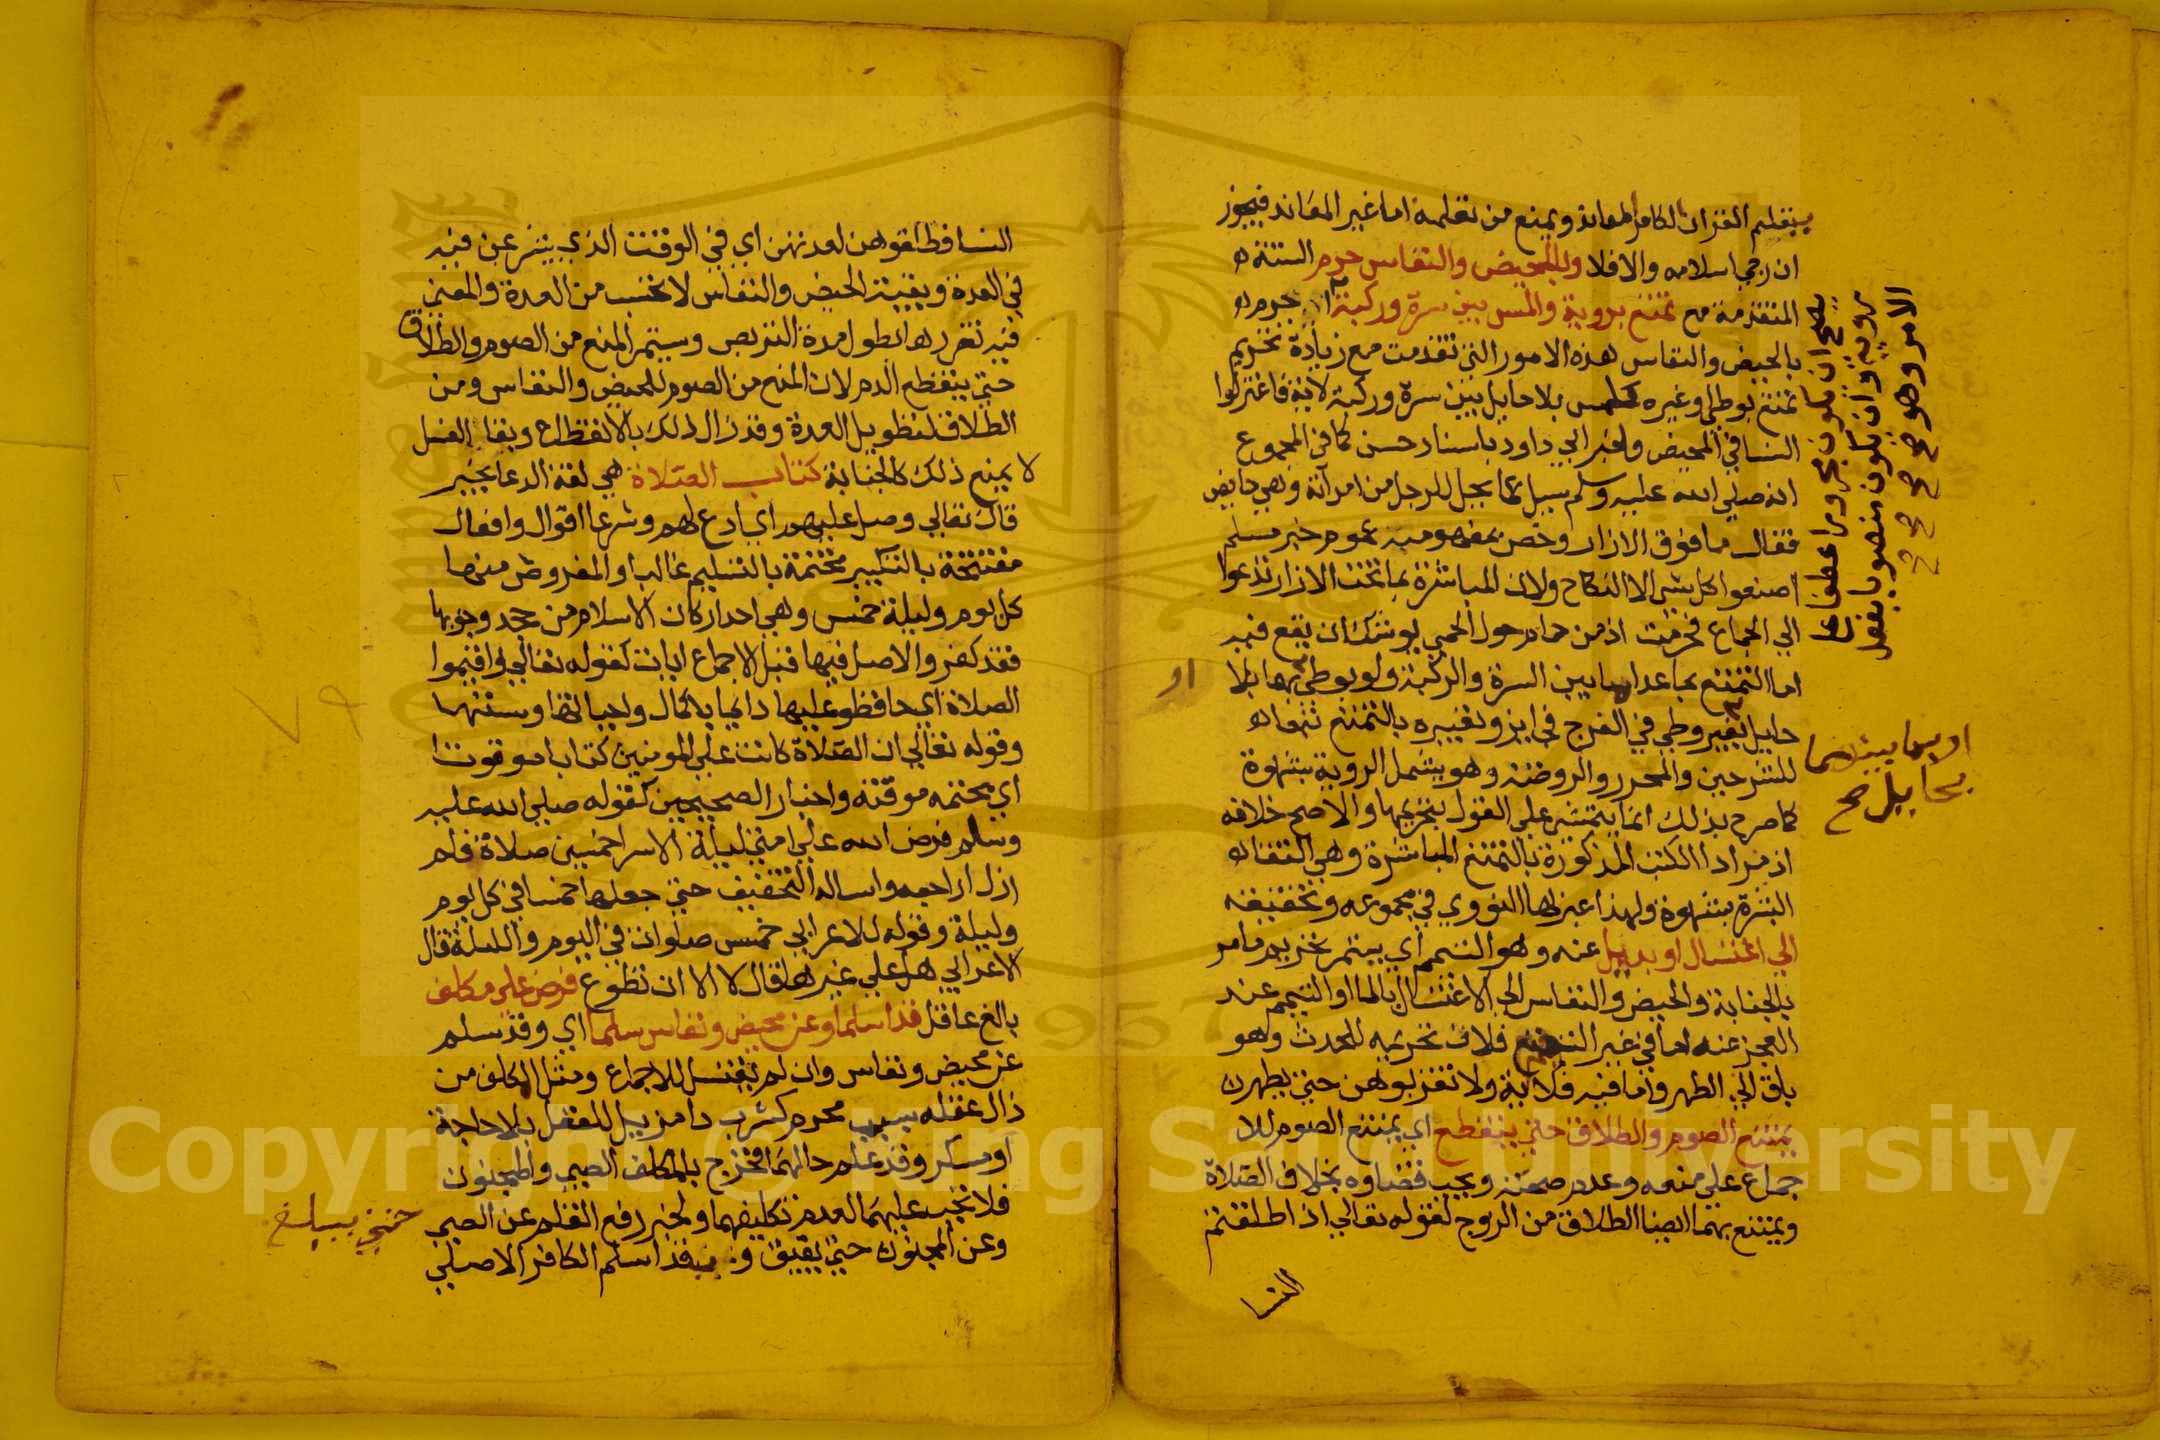 بتعليم القران الكافر المعاند ويمنع من تعلمه اما غير المعاند فيجوز
ان رجي اسلامه والا فلا وللمحيض والنفاس حرم الستة
المتقدمة مع تمتع بروية والمس بين سرة وركبة اي حرم
بالحيض والنفاس هذه الامور التي تقدمت مع زيادة تحريم
تمتع بوطي وغيره كلمس بلا حايل بين سرة وركبة لاية فاعتزلوا
النسا في المحيض ولخبر ابي داود باسناد حسن كما في المجموع
انه صلي الله عليه وسلم سيل عما يحل للرجل من امراته وهي حايض
فقال ما فوق الازار وخص بمفهومه عموم خبر مسلم
اصنعوا كل شي الا النكاح ولان المباشرة بما تحت الازار تدعوا
الي الجماع فحرمت اذ من حام حول الحمي يوشك ان يقع فيه
اما التمتع بما عدا ما بين السرة والركبة ولو بوطي بهما بلا
حايل بغير وطي في الفرج فجايز وتعبيره بالتمتع تبعا
للشرحين والمحرر والروضة وهو يشمل الروية بشهوة
كما صرح بذلك انما يتمشي علي القول بتحريمها والاصح خلافه
اذ مراد الكتب المذكورة بالتمتع المباشرة وهي التقا
البشرة بشهوة ولهذا عبر بها النووي في مجموعه وتحقيقه
الي اغتسال او بديل عنه وهو التيمم اي يستمر تحريم ما مر
بالجنابة والحيض والنفاس الي الاغتسال بالما او التيمم عند
العجز عنه اما في غير التمتع فلان تحريمه للحدث وهو
باق الي الطهر واما فيه فلاية ولا تقربوهن حتي يطهرن
يمتنع الصوم والطلاق حتي ينقطع اي يمتنع الصوم للا
جماع علي منعه وعدم صحته ويجب قضاوه بخلاف الصلاة
ويمتنع بهما ايضا الطلاق من الزوج لقوله تعالي اذا طلقتم
النسا
يصح ان يكون مجرورا عطفا علي
بروية وان يكون منصوبا بفعل
الامر وهو مع صح صح
او بما بينهما
بحايل صح
او
النسا فطلقوهن لعدتهن اي في الوقت الذي يشرعن فيه
في العدة وبقية الحيض والنفاس لا تحسب من العدة والمعني
فيه تضررها بطول مدة التربص وسيتمر المنع من الصوم والطلاق
حتي ينقطع الدم لان المنع من الصوم للحيض والنفاس ومن
الطلاق لتطويل العدة وقد زال ذلك بالانقطاع وبقا الغسل
لا يمنع ذلك كالجنابة كتاب الصلاة هي لغة الدعا بخير
قال تعالي وصل عليهم اي ادع لهم وشرعا اقوال وافعال
مفتتحة بالتكبير مختتمة بالتسليم غالبا والمفروض منها
كل يوم وليلة خمس وهي احد اركان الاسلام من جحد وجوبها
فقد كفر والاصل فيها قبل الاجماع ايات كقوله تعالي واقيموا
الصلاة اي حافظو عليها دايما باكمال واجباتها وسننها
وقوله تعالي ان الصلاة كانت علي المومنين كتابا موقوتا
اي محتمه موقته واخبار الصحيحين كقوله صلي الله عليه
وسلم فرض الله علي امتي ليلة الاسرا خمسين صلاة فلم
ازل اراجعه واساله التخفيف حتي جعلها خمسا في كل يوم
وليلة وقوله للاعرابي خمس صلوات في اليوم والليلة قال
الاعرابي هل علي غيرها قال لا الا ان تطوع فرض علي مكلف
بالغ عاقل قد اسلما وعن محيض ونفاس سلما اي وقد سلم
عن محيض ونفاس وان لم يغتسل للاجماع ومثل المكلف من
زال عقله بسبب محرم كشرب دا مزيل للعقل بلا حاجة
او مسكر وقد علم حالهما فخرج بالمكلف الصبي والمجنون
فلا تجب عليهما لعدم تكليفهما ولخبر رفع القلم عن الصبي
حتي يبلغ
وعن المجنون حتي يفيق و بقد اسلم الكافر الاصلي
٧٩
Copyright © King Saud University
1957